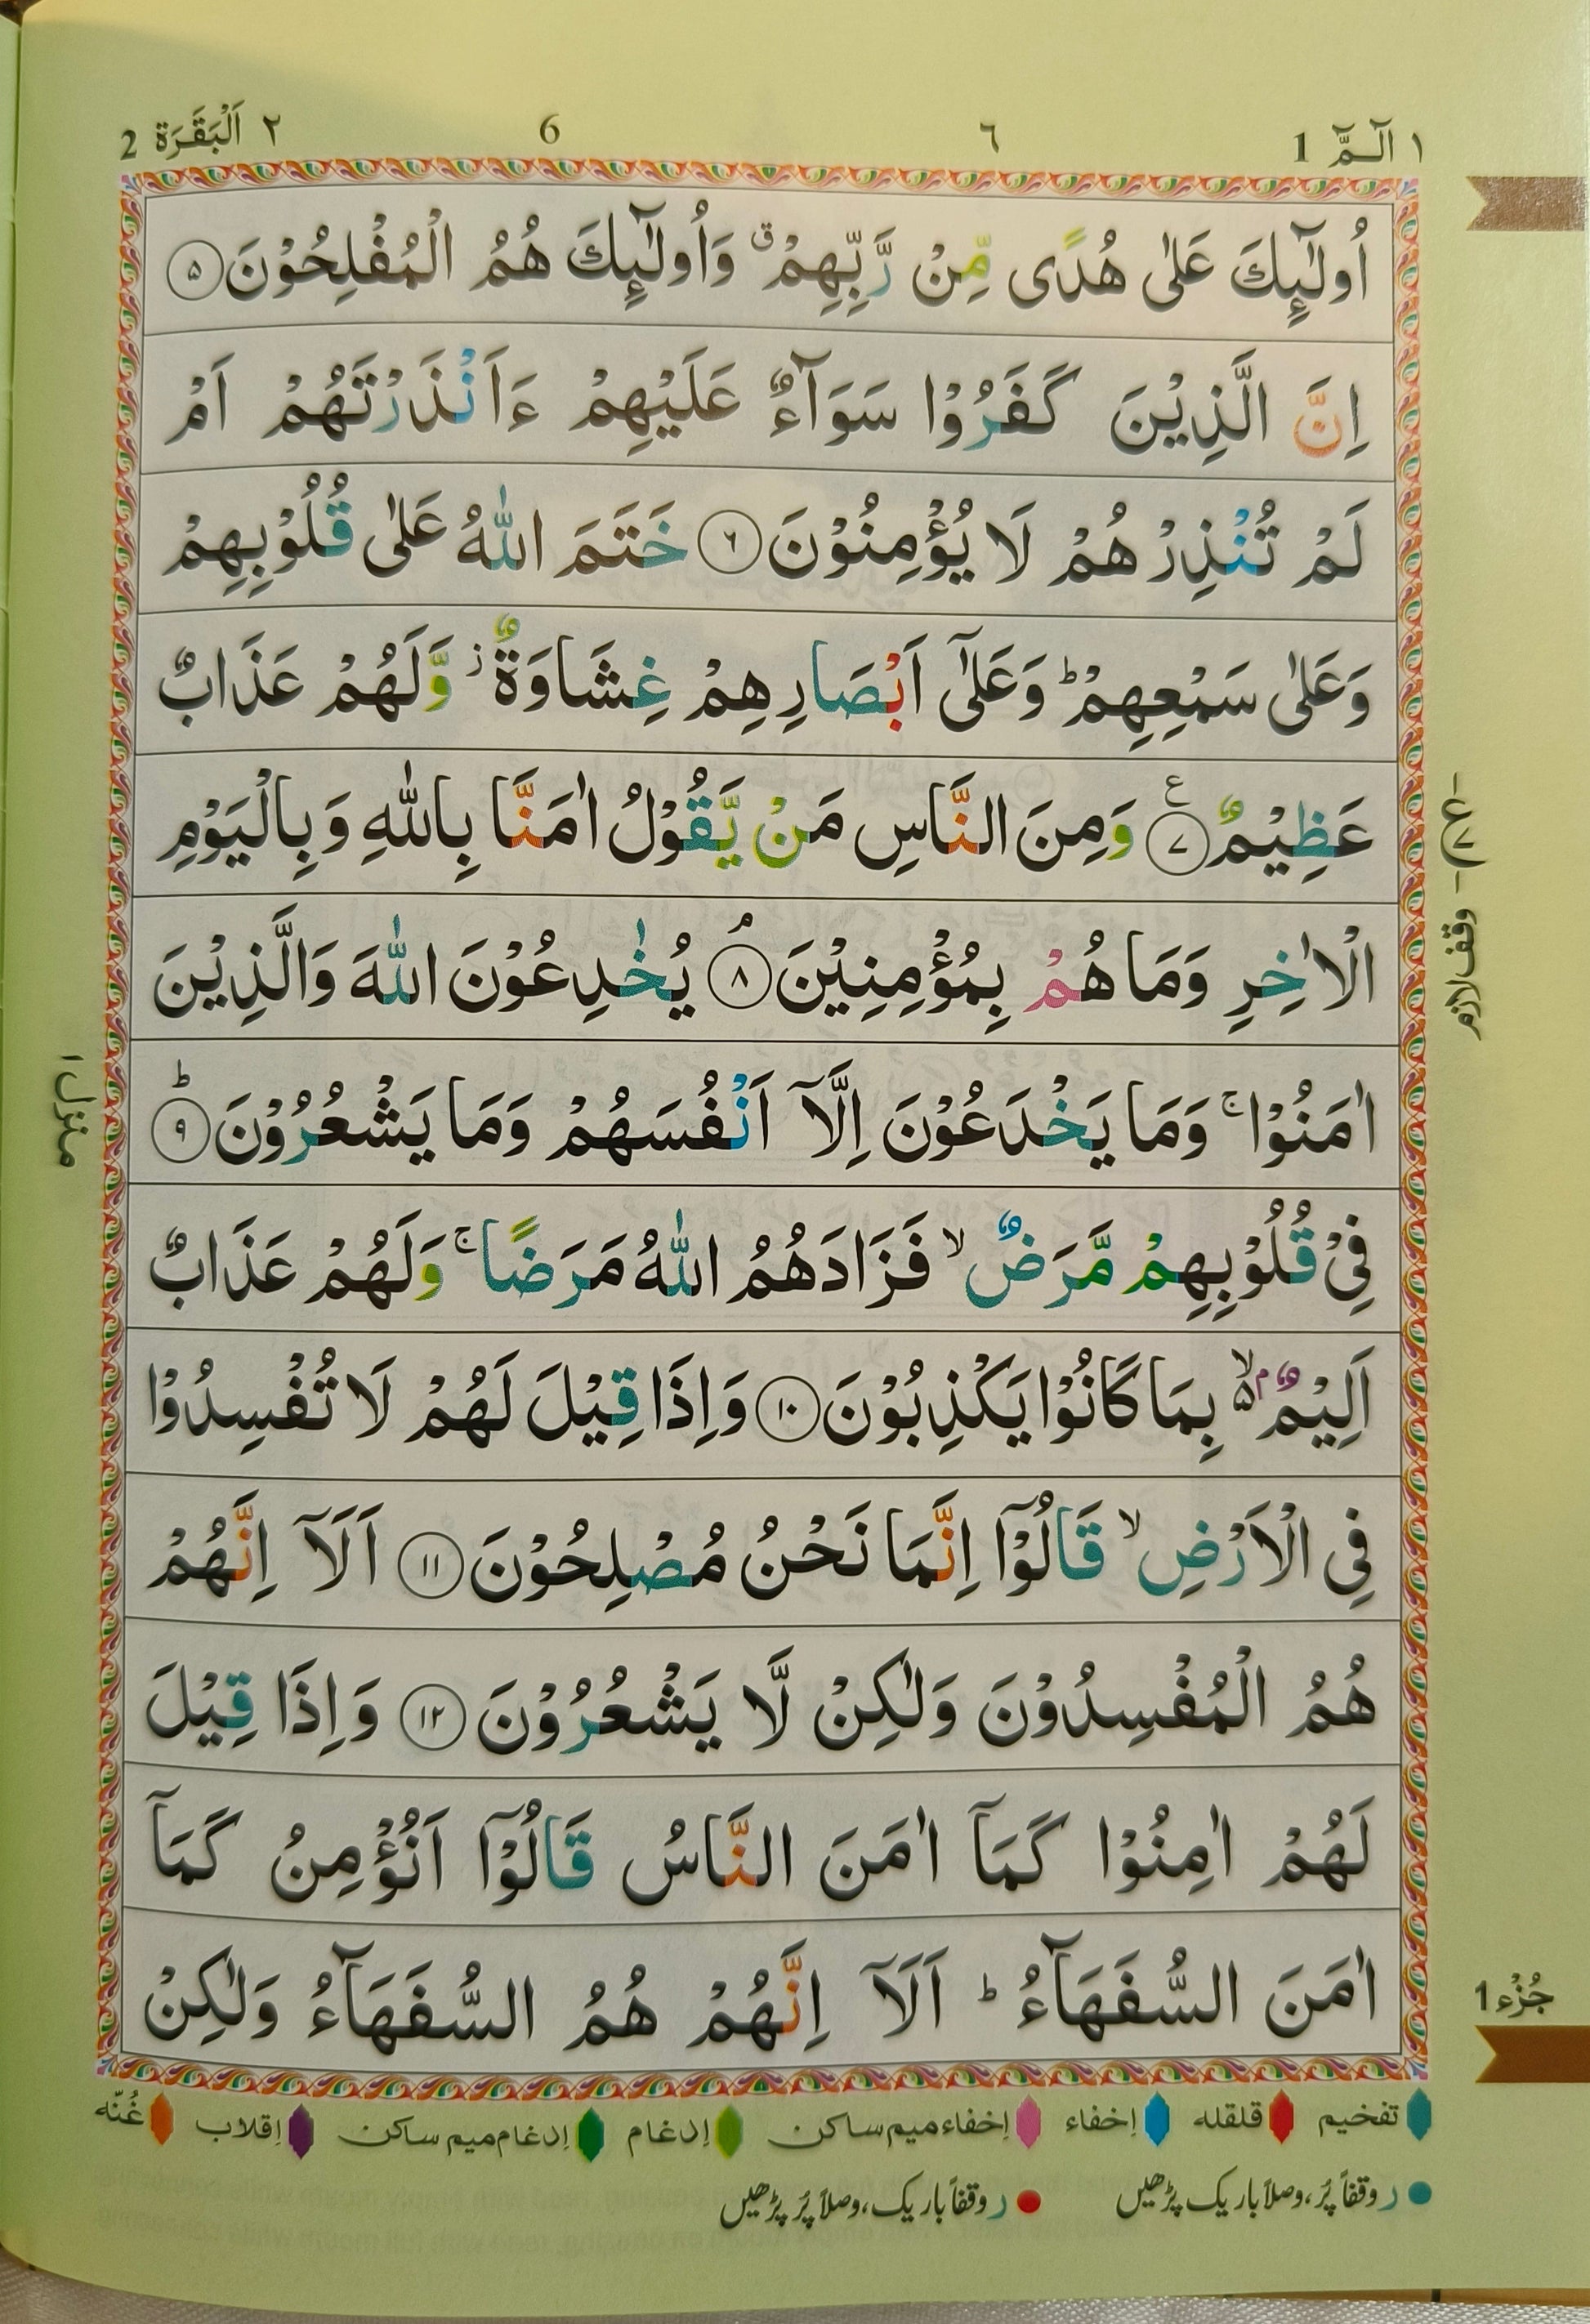 ١ الٓـمّٓ 1
٦
6
٢ اَلْبَقَرَة 2
اُولٰٓئِكَ عَلٰى هُدًى مِّنْ رَّبِّهِمْ ۗ وَاُولٰٓئِكَ هُمُ الْمُفْلِحُوْنَ ۵
اِنَّ الَّذِيْنَ كَفَرُوْا سَوَآءٌ عَلَيْهِمْ ءَاَنْذَرْتَهُمْ اَمْ
لَمْ تُنْذِرْهُمْ لَا يُؤْمِنُوْنَ ۶ خَتَمَ اللّٰهُ عَلٰى قُلُوْبِهِمْ
وَعَلٰى سَمْعِهِمْ ؕ وَعَلٰٓى اَبْصَارِهِمْ غِشَاوَةٌ ز وَّلَهُمْ عَذَابٌ
عَظِيْمٌ ۷ ع وَمِنَ النَّاسِ مَنْ يَّقُوْلُ اٰمَنَّا بِاللّٰهِ وَبِالْيَوْمِ
الْاٰخِرِ وَمَا هُمْ بِمُؤْمِنِيْنَ ۘ ۸ يُخٰدِعُوْنَ اللّٰهَ وَالَّذِيْنَ
اٰمَنُوْا ۚ وَمَا يَخْدَعُوْنَ اِلَّآ اَنْفُسَهُمْ وَمَا يَشْعُرُوْنَ ؕ ۹
فِيْ قُلُوْبِهِمْ مَّرَضٌ ۙ فَزَادَهُمُ اللّٰهُ مَرَضًا ۚ وَلَهُمْ عَذَابٌ
اَلِيْمٌۢ ۙ۵ بِمَا كَانُوْا يَكْذِبُوْنَ ۱۰ وَاِذَا قِيْلَ لَهُمْ لَا تُفْسِدُوْا
فِى الْاَرْضِ ۙ قَالُوْٓا اِنَّمَا نَحْنُ مُصْلِحُوْنَ ۱۱ اَلَآ اِنَّهُمْ
هُمُ الْمُفْسِدُوْنَ وَلٰكِنْ لَّا يَشْعُرُوْنَ ۱۲ وَاِذَا قِيْلَ
لَهُمْ اٰمِنُوْا كَمَآ اٰمَنَ النَّاسُ قَالُوْٓا اَنُؤْمِنُ كَمَآ
اٰمَنَ السُّفَهَآءُ ؕ اَلَآ اِنَّهُمْ هُمُ السُّفَهَآءُ وَلٰكِنْ
وقف لازم
منزل ۱
جُزْء 1
تفخیم قلقله إخفاء إخفاء میم ساکن إدغام إدغام میم ساکن إقلاب غُنّه
ر وقفاً پُر، وصلاً باریک پڑھیں ر وقفاً باریک، وصلاً پُر پڑھیں